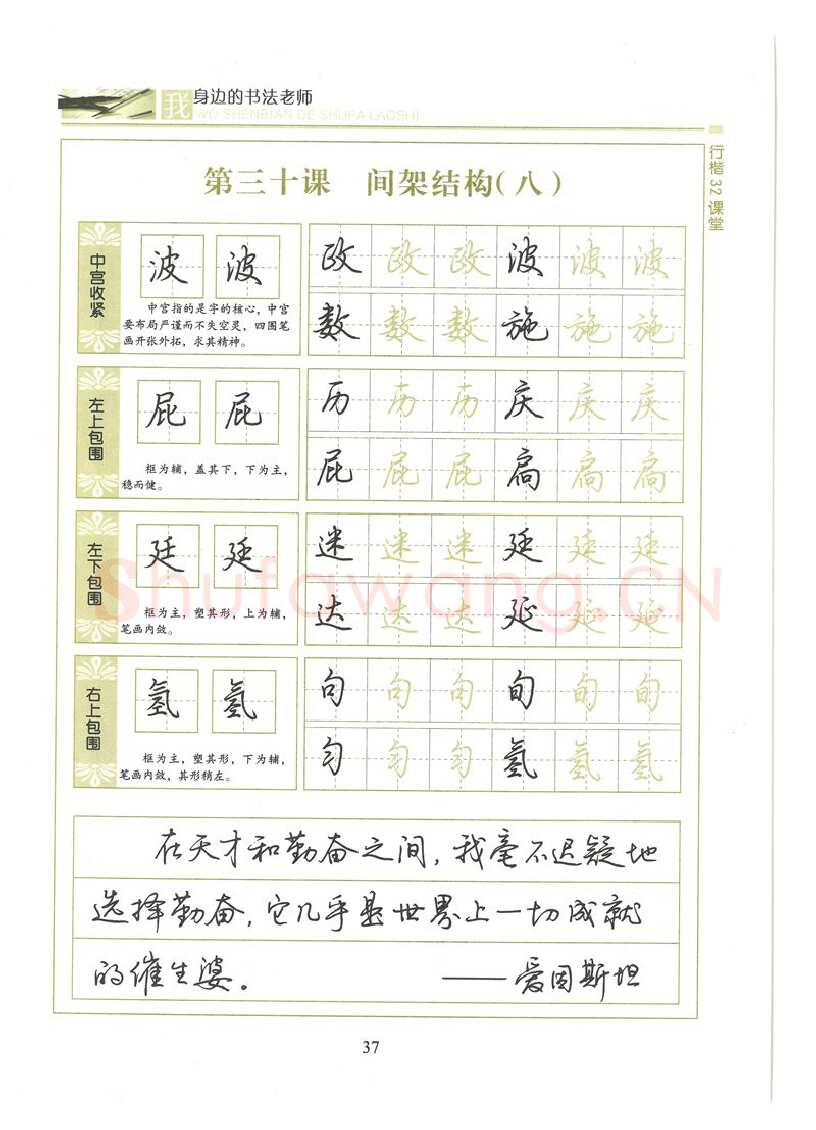 我身边的书法老师
WO SHENBIAN DE SHUFA LAOSHI
行楷32课堂
第三十课 间架结构(八)
中宫收紧
波 波
中宫指的是字的核心,中宫
要布局严谨而不失空灵,四围笔
画开张外拓,求其精神。
政 政 政 波 波 波
数 数 数 施 施 施
左上包围
屁 屁
框为辅,盖其下,下为主,
稳而健。
历 历 历 庆 庆 庆
屁 屁 屁 扃 扃 扃
左下包围
廷 廷
框为主,塑其形,上为辅,
笔画内敛。
迷 迷 迷 廷 廷 廷
达 达 达 延 延 延
右上包围
氢 氢
框为主,塑其形,下为辅,
笔画内敛,其形稍左。
句 句 句 旬 旬 旬
匀 匀 匀 氢 氢 氢
Shufawang.CN
在天才和勤奋之间,我毫不迟疑地
选择勤奋,它几乎是世界上一切成就
的催生婆。 ——爱因斯坦
37